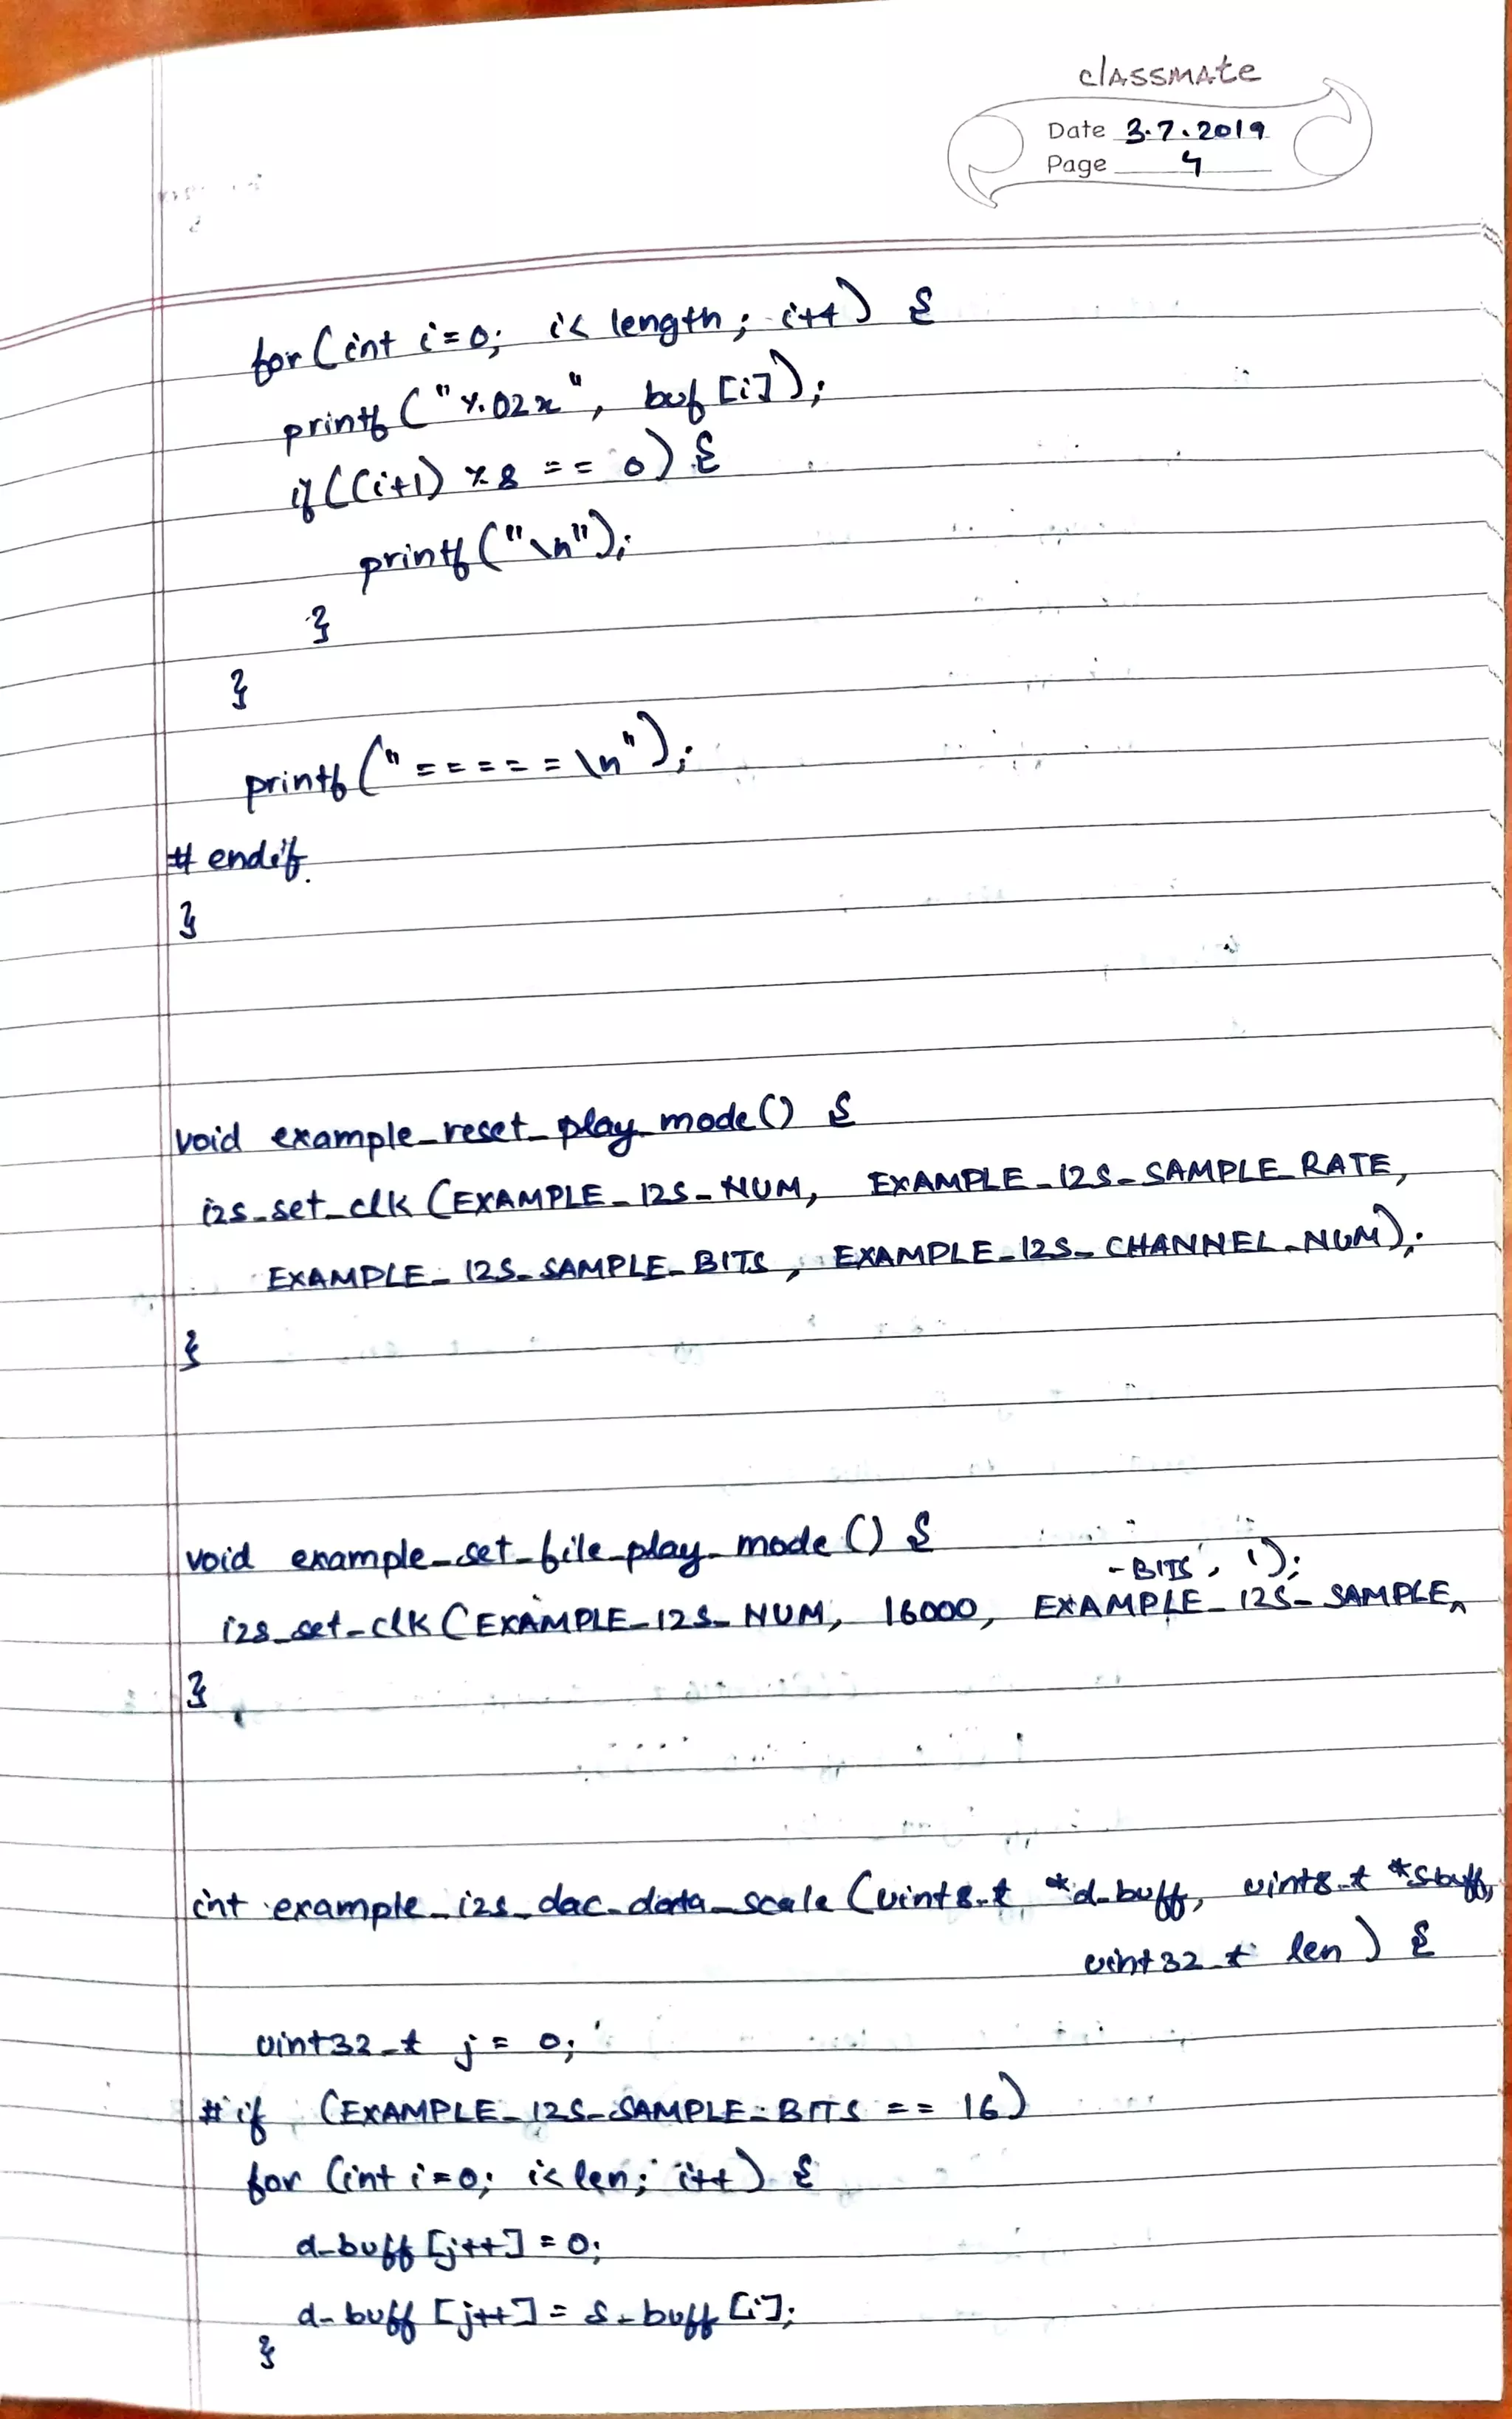 classmate
Date 3.7.2019
Page 4
for (int i=0; i< length; i++) {
printf ("%02x", buf [i]);
if ((i+1) %8 == 0) {
printf ("\n");
}
}
printf ("=====\n");
# endif
}
void example_reset_play_mode() {
i2s_set_clk (EXAMPLE_I2S_NUM, EXAMPLE_I2S_SAMPLE_RATE,
EXAMPLE_I2S_SAMPLE_BITS, EXAMPLE_I2S_CHANNEL_NUM);
}
void example_set_file_play_mode () {
i2s_set_clk (EXAMPLE_I2S_NUM, 16000, EXAMPLE_I2S_SAMPLE_BITS, 1);
}
int example_i2s_dac_data_scale (uint8_t *d_buff, uint8_t *s_buff,
uint32_t len) {
uint32_t j = 0;
#if (EXAMPLE_I2S_SAMPLE_BITS == 16)
for (int i=0; i< len; i++) {
d_buff [j++] = 0;
d_buff [j++] = s_buff [i];
}